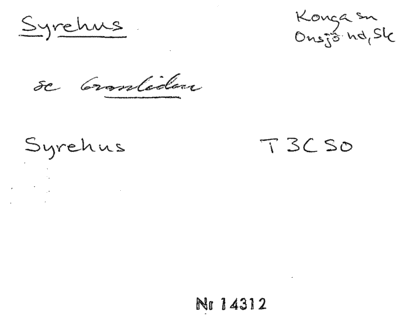 Syrehus
Konga sn
Onsjö hd, Sk
se Granliden
Syrehus T 3C SO
Nr 14312